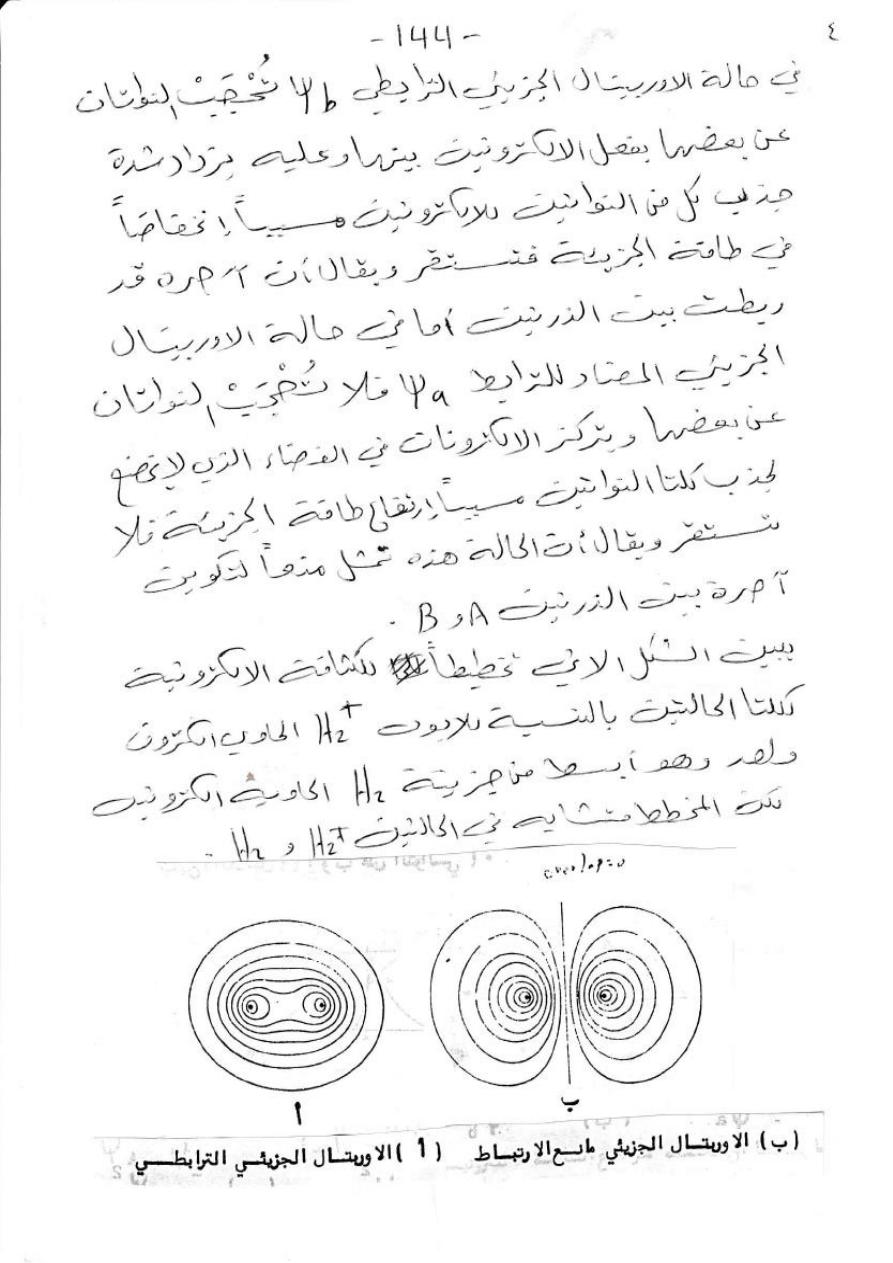 ٤
-١٤٤-
في حالة الاوربيتال الجزيئي الترابطي ψb تُحْجَبْ النواتان
عن بعضهما بفعل الالكترونين بينهما وعليه يزداد شدة
جذب كل من النواتين للالكترونين مسبباً إنخفاضاً
في طاقة الجزيئة فتستقر ويقال أن آصرة قد
ربطت بين الذرتين أما في حالة الاوربيتال
الجزيئي المضاد للترابط ψa فلا تُحْجَبْ النواتان
عن بعضهما ويتركز الالكترونات في الفضاء الذي لا يخضع
لجذب كلتا النواتين مسبباً إرتفاع طاقة الجزيئة فلا
تستقر ويقال أن الحالة هذه تمثل منعاً لتكوين
آصرة بين الذرتين A و B .
يبين الشكل الاتي تخطيطاً للكثافة الالكترونية
لكلتا الحالتين بالنسبة للايون H₂⁺ الحاوي الكترون
واحد وهو أبسط من جزيئة H₂ الحاوية الكترونين
لكن المخطط متشابه في الحالتين H₂⁺ و H₂ .
overlap=0
ا
ب
(ب) الاوربتال الجزيئي مانع الارتباط (١) الاوربتال الجزيئي الترابطي